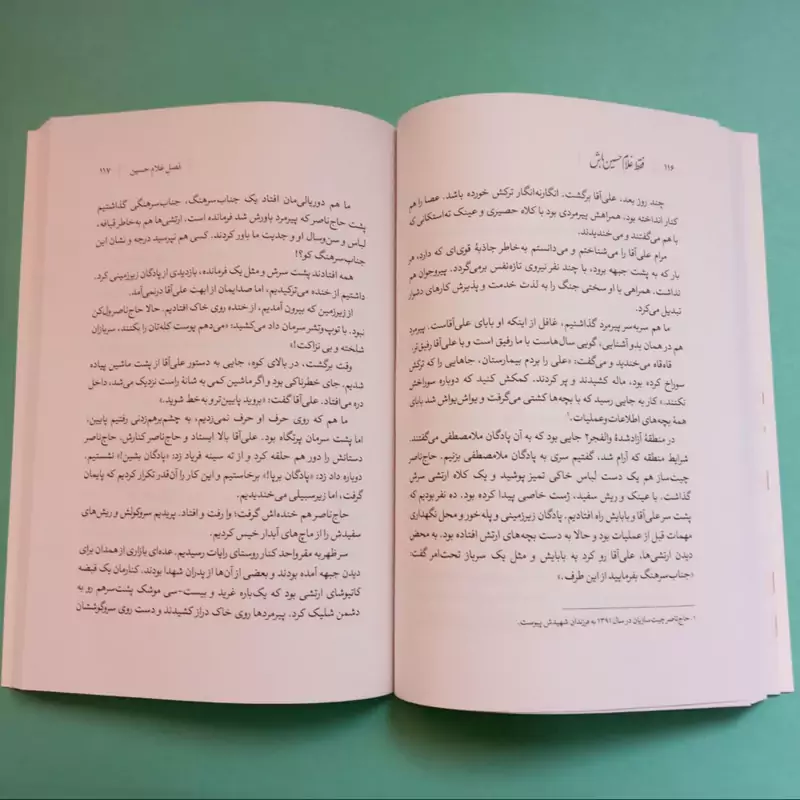 ۱۱۶ فقط غلام حسین باش
چند روز بعد، علی‌آقا برگشت. انگارنه‌انگار ترکش خورده باشد. عصا را هم
کنار انداخته بود. همراهش پیرمردی بود با کلاه حصیری و عینک ته‌استکانی که
با هم می‌گفتند و می‌خندیدند.
مرام علی‌آقا را می‌شناختم و می‌دانستم به‌خاطر جاذبهٔ قوی‌ای که دارد، هر
بار که به پشت جبهه برود، با چند نفر نیروی تازه‌نفس برمی‌گردد. پیروجوان هم
نداشت. همراهی با او سختی جنگ را به لذت خدمت و پذیرش کارهای دشوار
تبدیل می‌کرد.
ما هم سربه‌سر پیرمرد گذاشتیم، غافل از اینکه او بابای علی‌آقاست. پیرمرد
هم در همان بدو آشنایی، گویی سال‌هاست با ما رفیق است و با علی‌آقا رفیق‌تر.
قاه‌قاه می‌خندید و می‌گفت: «علی را بردم بیمارستان، جاهایی را که ترکش
سوراخ کرده بود، ماله کشیدند و پر کردند. کمکش کنید که دوباره سوراخش
نکنند.» کار به جایی رسید که با بچه‌ها کشتی می‌گرفت و یواش‌یواش شد بابای
همهٔ بچه‌های اطلاعات‌وعملیات.۱
در منطقهٔ آزادشدهٔ والفجر۲ جایی بود که به آن پادگان ملامصطفی می‌گفتند.
شرایط منطقه که آرام شد، گفتیم سری به پادگان ملامصطفی بزنیم. حاج‌ناصر
چیت‌ساز هم یک دست لباس خاکی تمیز پوشید و یک کلاه ارتشی سرش
گذاشت. با عینک و ریش سفید، ژست خاصی پیدا کرده بود. ده نفر بودیم که
پشت سر علی‌آقا و بابایش راه افتادیم. پادگان زیرزمینی و پله‌خور و محل نگهداری
مهمات قبل از عملیات بود و حالا به دست بچه‌های ارتش افتاده بود. به محض
دیدن ارتشی‌ها، علی‌آقا رو کرد به بابایش و مثل یک سرباز تحت‌امر گفت:
«جناب‌سرهنگ بفرمایید از این طرف.»
۱. حاج‌ناصر چیت‌سازیان در سال ۱۳۹۱ به فرزندان شهیدش پیوست.
فصل غلام حسین ۱۱۷
ما هم دوریالی‌مان افتاد یک جناب‌سرهنگ، جناب‌سرهنگی گذاشتیم
پشت حاج‌ناصر که پیرمرد باورش شد فرمانده است. ارتشی‌ها هم به‌خاطر قیافه،
لباس و سن‌وسال او و جدیت ما باور کردند. کسی هم نپرسید درجه و نشان این
جناب‌سرهنگ کو؟!
همه افتادند پشت سرش و مثل یک فرمانده، بازدیدی از پادگان زیرزمینی کرد.
داشتیم از خنده می‌ترکیدیم، اما صدایمان از ابهت علی‌آقا درنمی‌آمد.
از زیرزمین که بیرون آمدیم، از خنده روی خاک افتادیم. حالا حاج‌ناصر ول‌کن
نبود. با توپ‌وتشر سرمان داد می‌کشید: «می‌دهم پوست کله‌تان را بکنند، سربازان
شلخته و بی‌نزاکت!»
وقت برگشت، در بالای کوه، جایی به دستور علی‌آقا از پشت ماشین پیاده
شدیم. جای خطرناکی بود و اگر ماشین کمی به شانهٔ راست نزدیک می‌شد، داخل
دره می‌افتاد. علی‌آقا گفت: «بروید پایین‌تر و به خط شوید.»
ما هم که روی حرف او حرف نمی‌زدیم، به چشم‌برهم‌زدنی رفتیم پایین،
اما پشت سرمان پرتگاه بود. علی‌آقا بالا ایستاد و حاج‌ناصر کنارش. حاج‌ناصر
دستانش را دور هم حلقه کرد و از ته سینه فریاد زد: «پادگان بشین!» نشستیم.
دوباره داد زد: «پادگان برپا!» برخاستیم و این کار را آن‌قدر تکرار کردیم که پایمان
گرفت، اما زیرسبیلی می‌خندیدیم.
حاج‌ناصر هم خنده‌اش گرفت؛ وا رفت و افتاد. پریدیم سروکولش و ریش‌های
سفیدش را از ماچ‌های آبدار خیس کردیم.
سر ظهر به مقر واحد کنار روستای رایات رسیدیم. عده‌ای بازاری از همدان برای
دیدن جبهه آمده بودند و بعضی از آن‌ها از پدران شهدا بودند. کنارمان یک قبضه
کاتیوشای ارتشی بود که یک‌باره غرید و بیست-سی موشک پشت‌سرهم رو به
دشمن شلیک کرد. پیرمردها روی خاک دراز کشیدند و دست روی سروگوششان